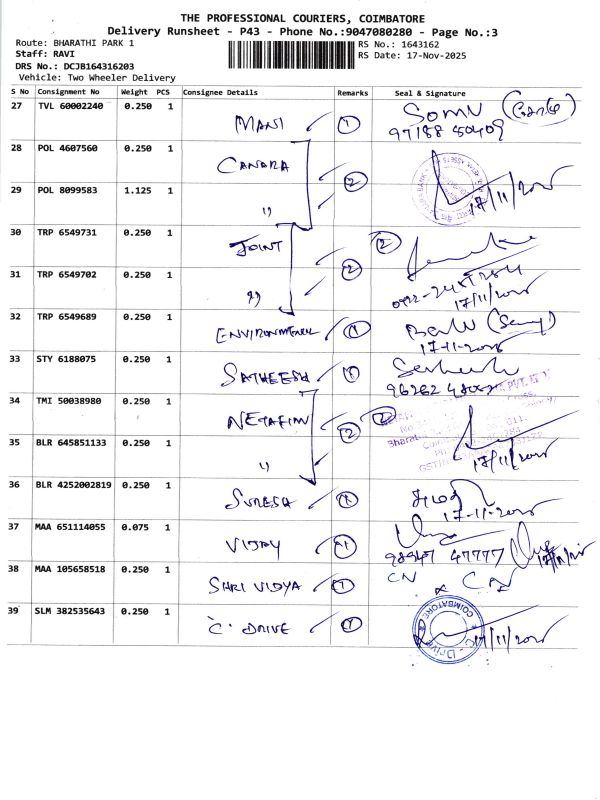 THE PROFESSIONAL COURIERS, COIMBATORE
Delivery Runsheet - P43 - Phone No.:9047080280 - Page No.:3
Route: BHARATHI PARK 1
Staff: RAVI
DRS No.: DCJB164316203
Vehicle: Two Wheeler Delivery
RS No.: 1643162
RS Date: 17-Nov-2025
S No Consignment No Weight PCS Consignee Details Remarks Seal & Signature
27 TVL 60002240 0.250 1 MANI 1 SOMU
97188 50409
28 POL 4607560 0.250 1 CANARA 2
29 POL 8099583 1.125 1 " 17/11/2025
30 TRP 6549731 0.250 1 JOINT 2 2
31 TRP 6549702 0.250 1 "
17/11/2025
32 TRP 6549689 0.250 1 ENVIRONMENTAL 1
17-11-2025
33 STY 6188075 0.250 1 SATHEESH 1
34 TMI 50038980 0.250 1 NETAFIM 2 2
35 BLR 645851133 0.250 1 " 17/11/2025
36 BLR 4252002819 0.250 1 SURESH 1
17-11-2025
37 MAA 651114055 0.075 1 VIJAY 1
98947 47777
38 MAA 105658518 0.250 1 SHRI VIDYA 1 CN CN
39 SLM 382535643 0.250 1 C. DRIVE 1 COIMBATORE C-Drive 17/11/2025